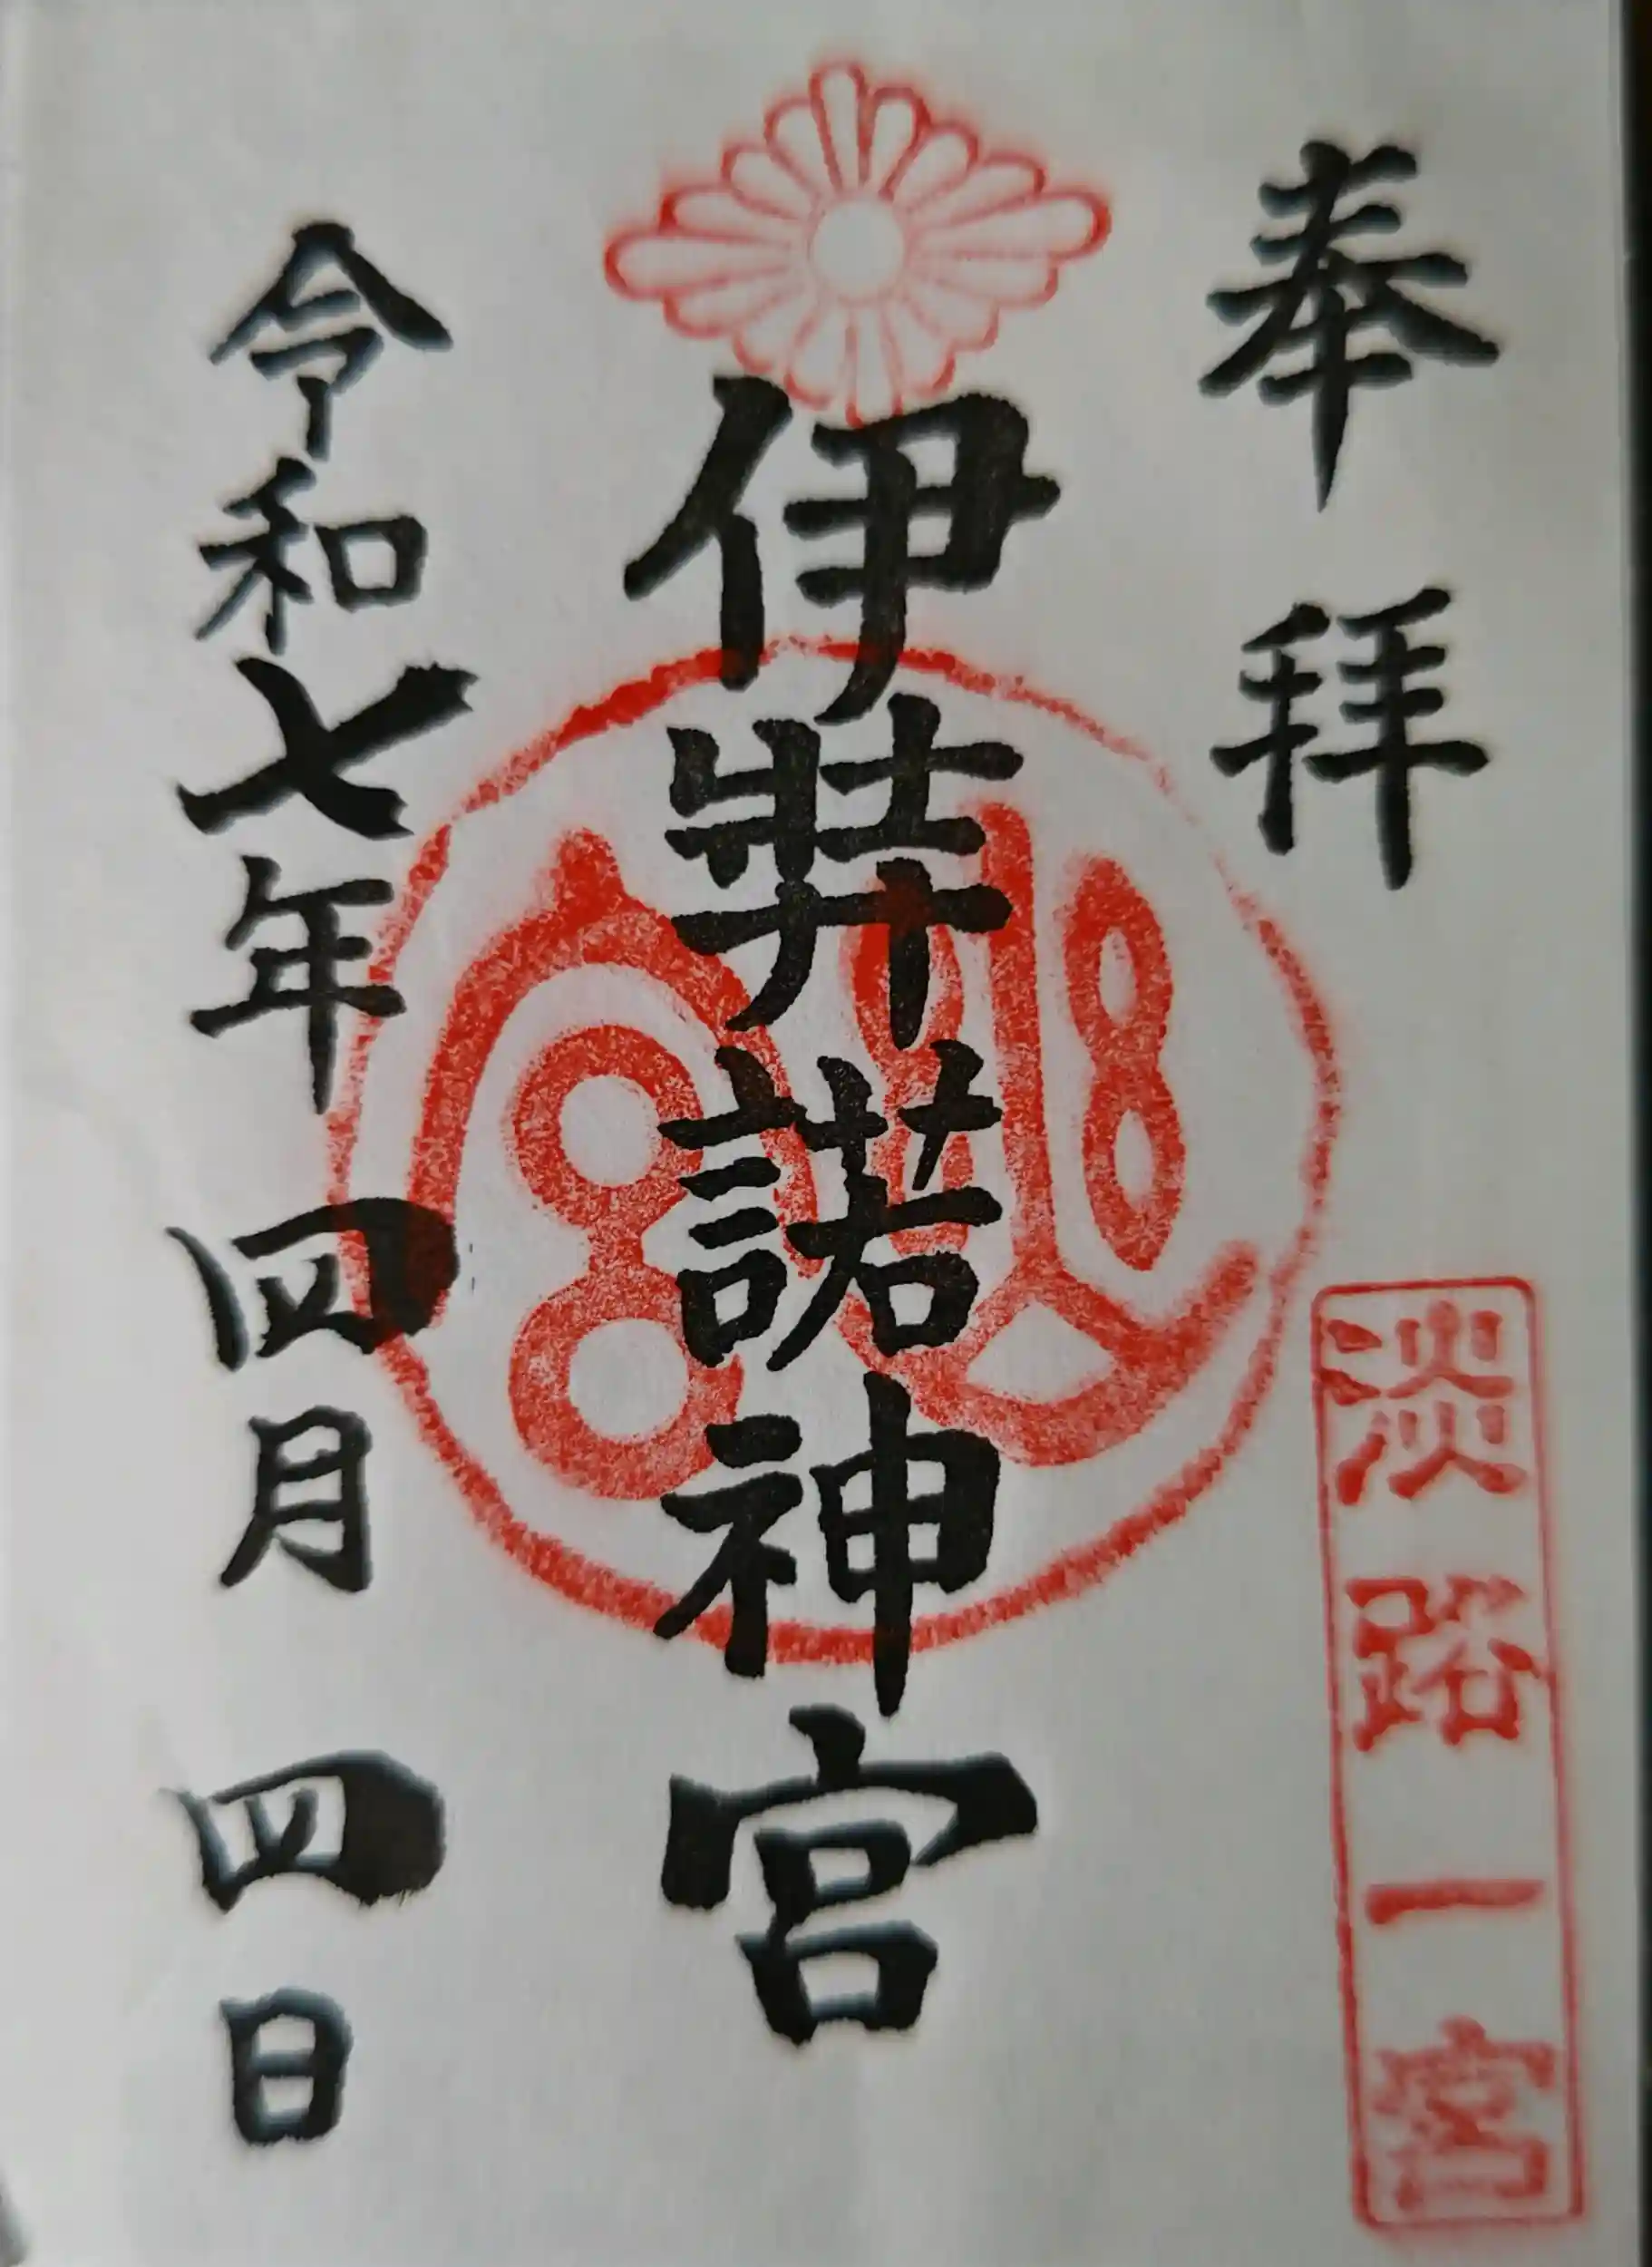 奉拝
淡路一宮
伊弉諾神宮
令和七年四月四日